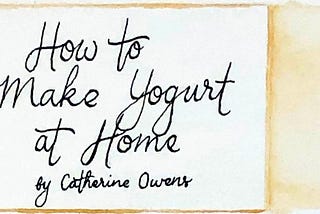 How to
Make Yogurt
at Home
by Catherine Owens